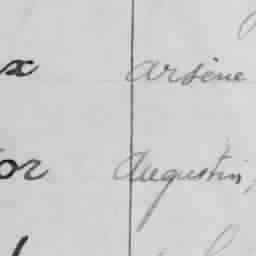 x Arsène
or Augustin,